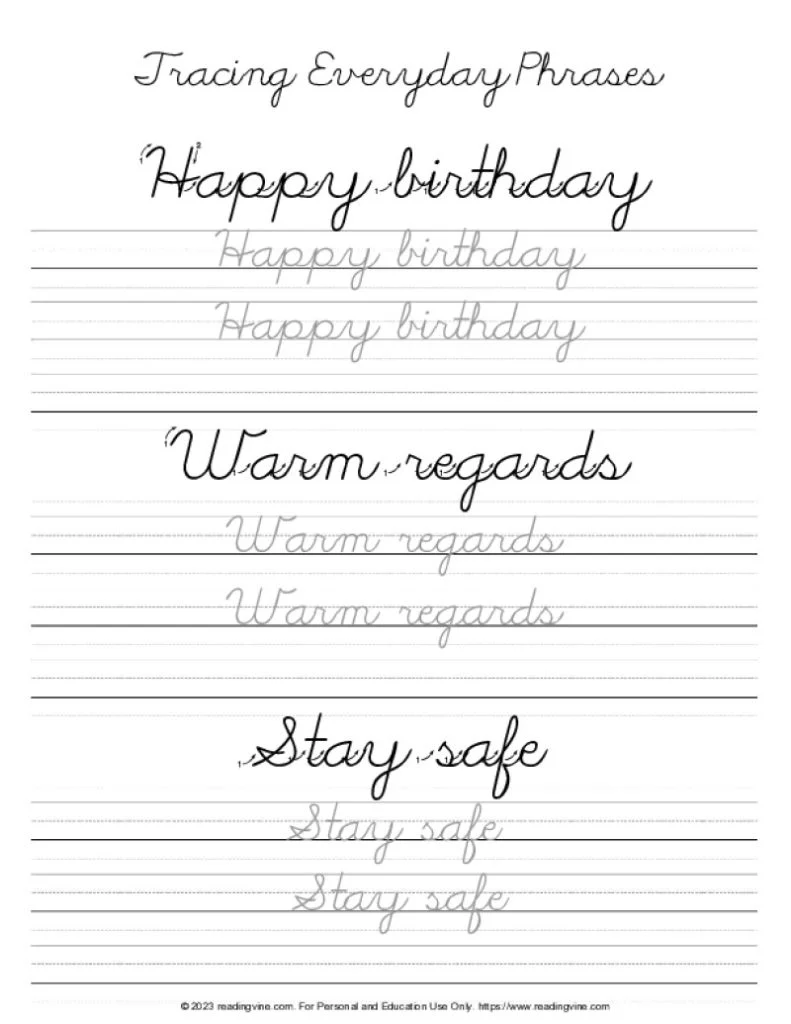 Tracing Everyday Phrases
Happy birthday
Happy birthday
Happy birthday
Warm regards
Warm regards
Warm regards
Stay safe
Stay safe
Stay safe
© 2023 readingvine.com. For Personal and Education Use Only. https://www.readingvine.com